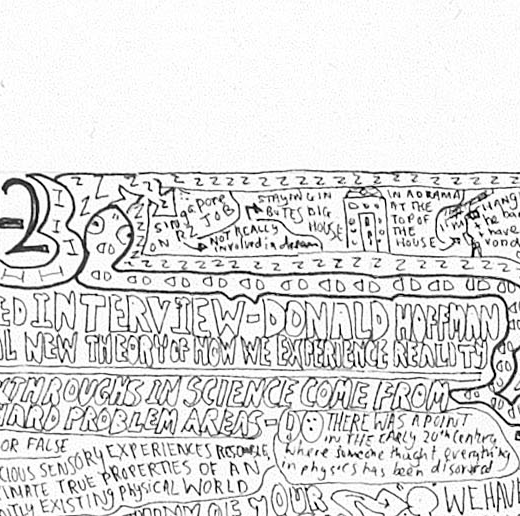 -2
SIMON
as poppa
JOB
NOT REALLY
involved in dream
STAYING IN
BUTES BIG
HOUSE
IN A DRAMA
AT THE
TOP OF
THE
HOUSE
HANG
ED INTERVIEW-DONALD HOFFMAN
L NEW THEORY OF HOW WE EXPERIENCE REALITY
KTHROUGHS IN SCIENCE COME FROM
HARD PROBLEM AREAS-
DO THERE WAS A POINT
IN THE EARLY 20th Century
where someone thought everything
in physics has been
OR FALSE
CIOUS SENSORY EXPERIENCES RESEMBLE
TIMATE TRUE PROPERTIES OF AN
NTLY EXISTING physical WORLD
ONE OF YOUR
WE HAVE